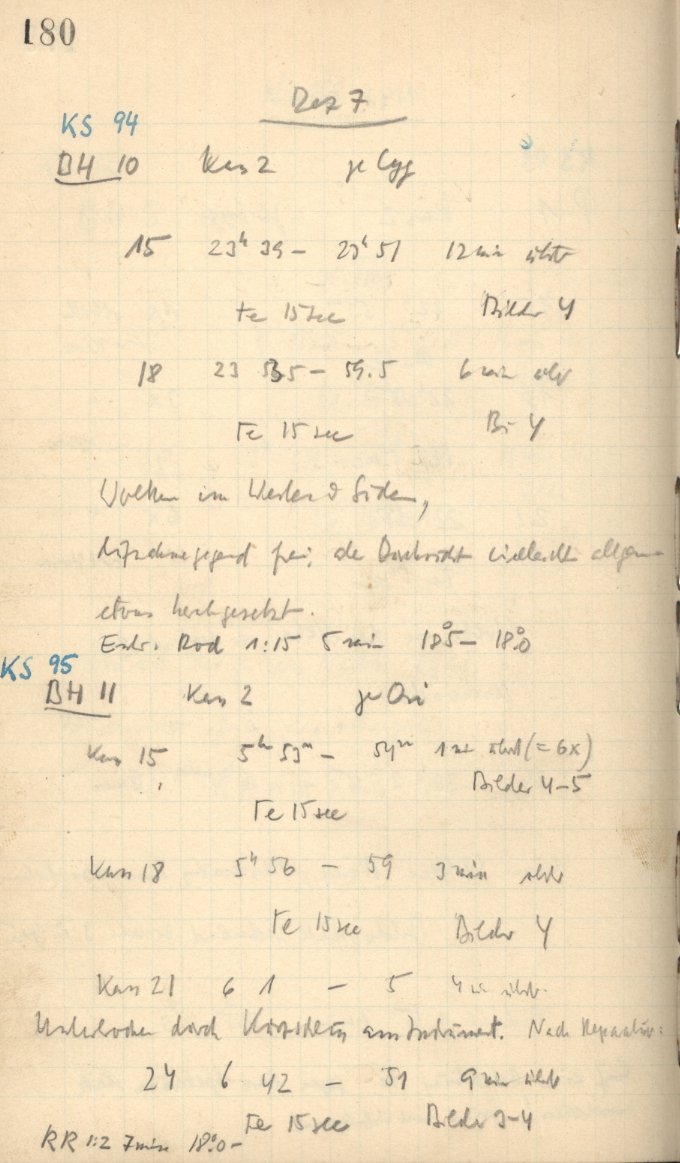 180
Dez 7
KS 94
BH 10 Kas 2 γ Cyg
15 23ʰ 39 – 23ʰ 51 12 min
Te 15 sec Bilder 4
18 23 53.5 – 59.5 6 min
Te 15 sec Bi 4
Wolken im Westen & Süden,
Aufnahmegegend frei, die Durchsicht vielleicht allgem.
etwas herabgesetzt.
Entw. Rod 1:15 5 min 18°5 – 18°0
KS 95
BH 11 Kas 2 γ Ori
Kas 15 5ʰ 53ᵐ – 54ᵐ 1 m (= 6x)
Bilder 4–5
Te 15 sec
Kas 18 5ʰ 56 – 59 3 min
Te 15 sec Bilder 4
Kas 21 6 1 – 5 4 m
Unterbrochen durch Kurzschluss am Instrument. Nach Reparatur:
24 6 42 – 51 9 min
Te 15 sec Bilder 3–4
RR 1:2 7 min 18°.0 –